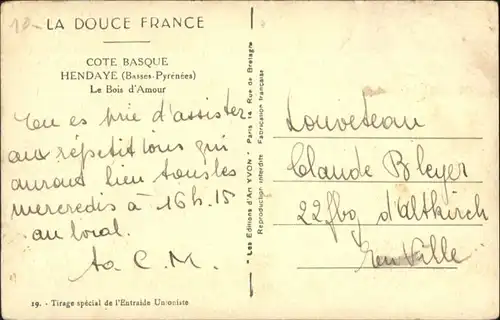 10-
LA DOUCE FRANCE
COTE BASQUE
HENDAYE (Basses-Pyrénées)
Le Bois d'Amour
Tu es prié d'assister
aux répétitions qui
auront lieu tous les
mercredis à 16h.15
au local.
ta C. M.
19. - Tirage spécial de l'Entraide Unioniste
- Les Editions d'Art YVON - Paris 14 Rue de Bretagne
Reproduction interdite Fabrication française
Louveteau
Claude Bleyer
22 fbg d'altkirch
En Ville